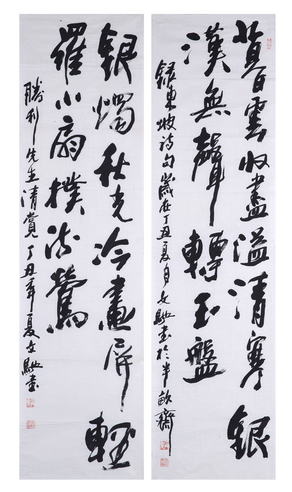 暮雲收盡溢清寒銀
漢無聲轉玉盤
録東坡詩句歲在丁丑夏月文馳書於半畝齋
銀燭秋光冷畫屏輕
羅小扇撲流螢
勝利先生清賞丁丑年夏文馳書